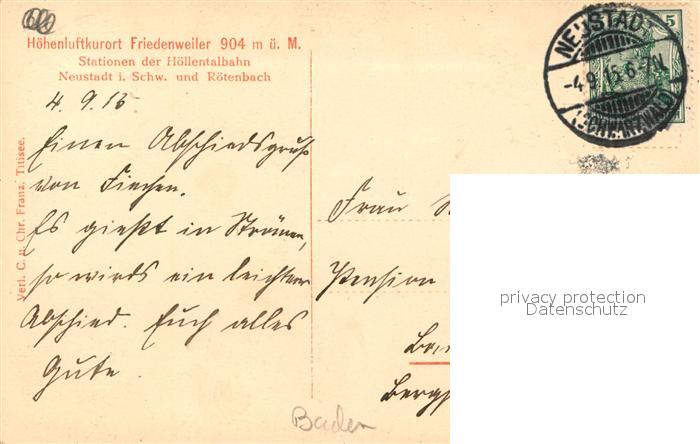 Höhenluftkurort Friedenweiler 904 m ü. M.
Stationen der Höllentalbahn
Neustadt i. Schw. und Rötenbach
4.9.15
Einen Abschiedsgruß
von hier.
Es gießt in Strömen,
so wirds ein leichter
Abschied. Euch alles
Gute.
Verl. C. u. Chr. Franz, Titisee.
NEUSTADT
-4.9.15.6-7N.
(SCHWARZWALD)
5
Frau
Pension
Berg
Baden
privacy protection
Datenschutz